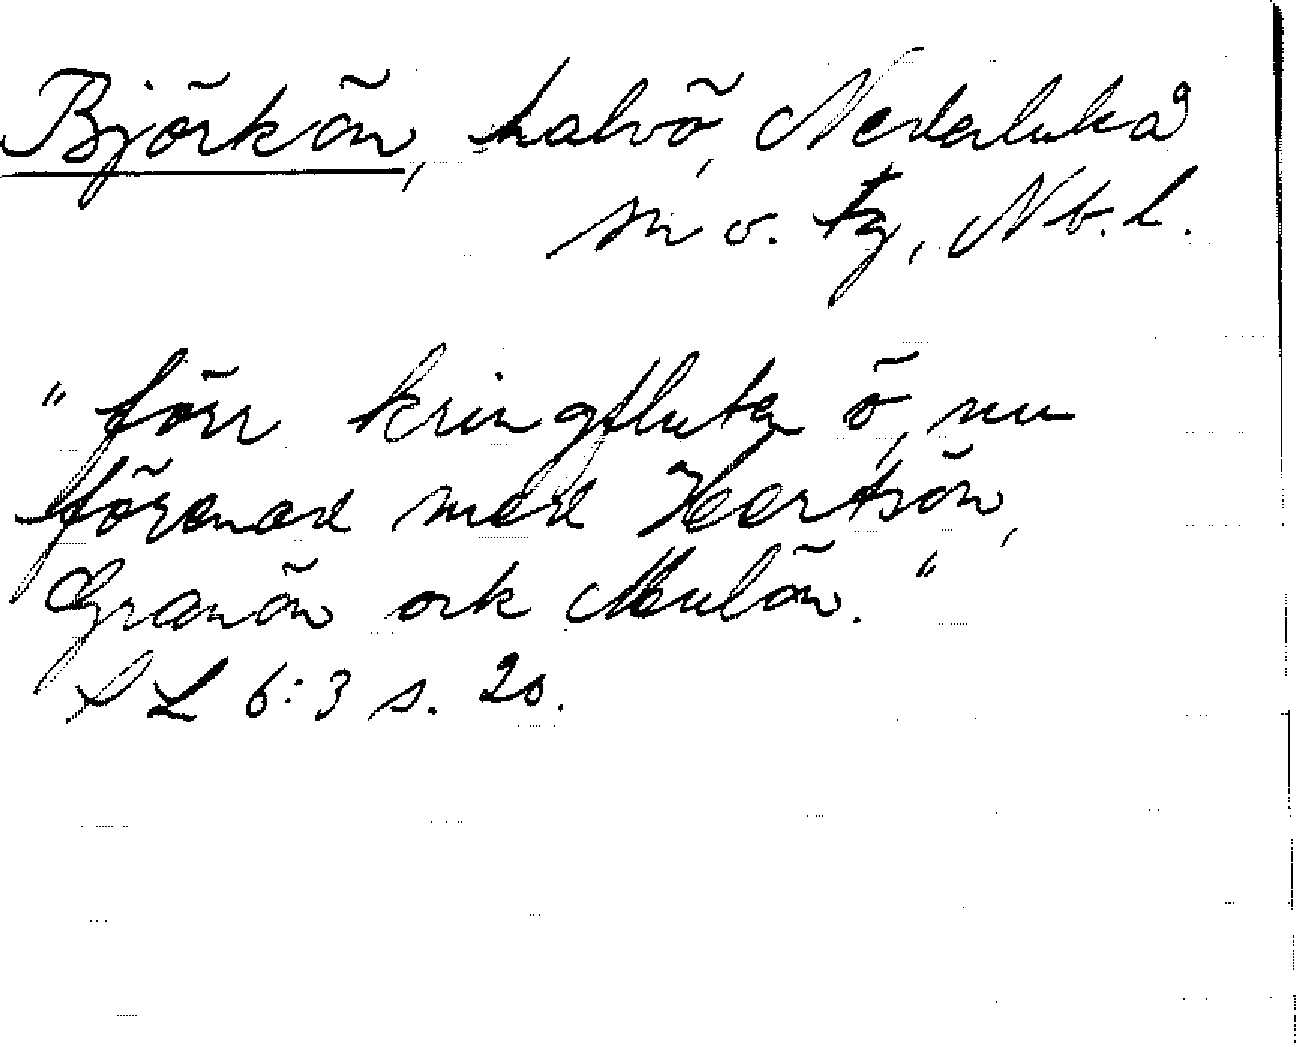 Björkön, halvö, Nederluleå
sn o. tg, Nb. l.
"förr kringfluten ö, nu
förenad med Hertsön,
Granön och Mulön."
SL 6:3 s. 20.